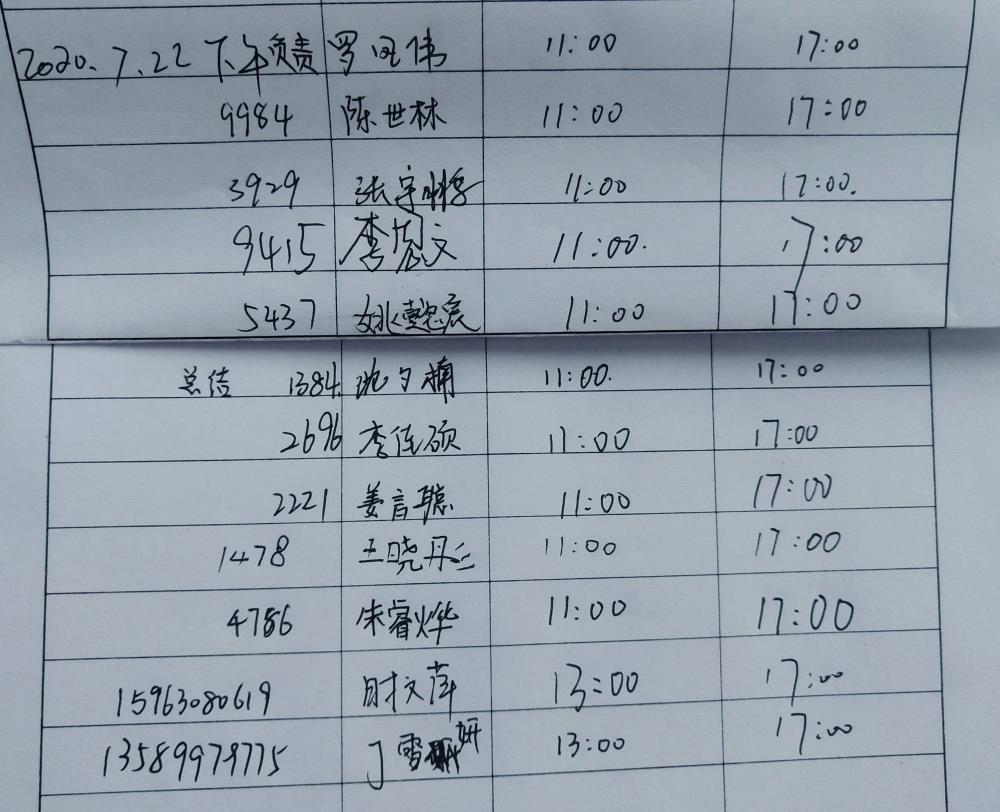 2020.7.22 下午负责 罗 伟 11:00 17:00
9984 陈世林 11:00 17:00
3929 张宇 11:00 17:00.
9415 李宏文 11:00. 17:00
5437 姚懿宸 11:00 17:00
总结 1384. 夕楠 11:00. 17:00
2696 李佳硕 11:00 17:00
2221 姜言聪 11:00 17:00
1478 王晓丹 11:00 17:00
4786 朱睿烨 11:00 17:00
15963080619 文萍 13:00 17:00
13589979775 丁雪妍 13:00 17:00